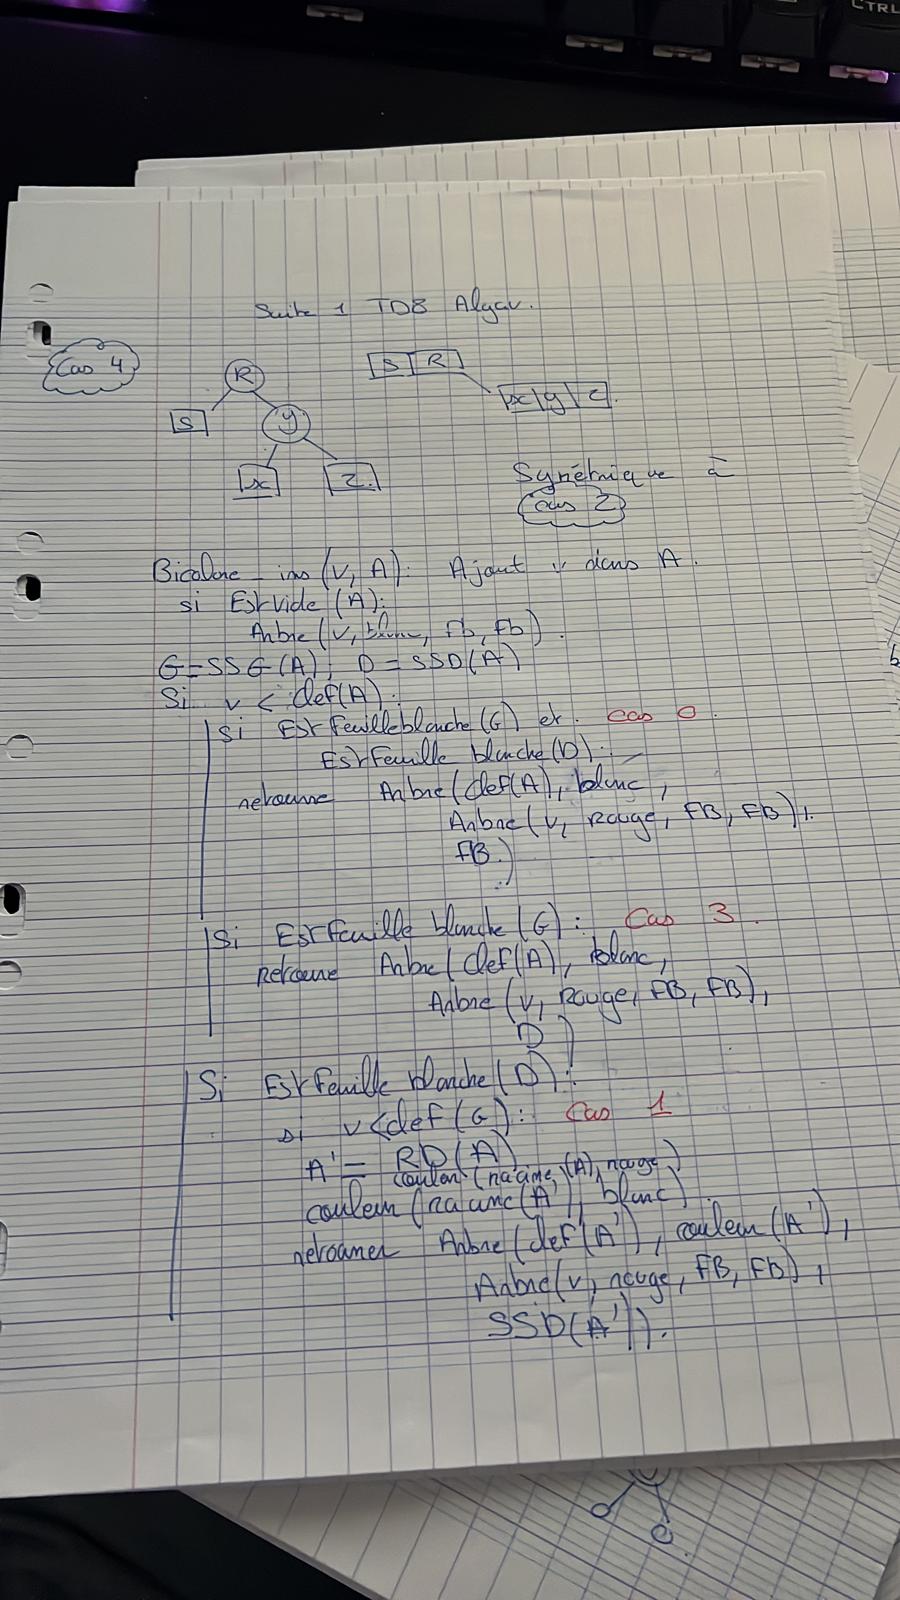 Suite 1 TD8 Algav.
Cas 4
R
S R
S
y
x y z
x
z
Symétrique à
cas 2
Bicolore_ins (v, A): Ajout v dans A.
si EstVide (A):
Arbre (v, blanc, Fb, Fb).
G = SSG (A), D = SSD(A)
Si v < clef(A):
Si EstFeuilleblanche (G) et cas 0.
EstFeuille blanche (D):
retourne Arbre (clef(A), blanc,
Arbre (v, Rouge, FB, FB),
FB.)
Si EstFeuille blanche (G): Cas 3.
Retourne Arbre (clef(A), blanc,
Arbre (v, Rouge, FB, FB),
D)
Si EstFeuille blanche (D):
si v < clef (G): Cas 1
A' = RD(A)
couleur (racine (A), rouge)
couleur (racine (A'), blanc).
retourner Arbre (clef (A'), couleur (A'),
Arbre (v, rouge, FB, FB),
SSD(A')).
CTRL